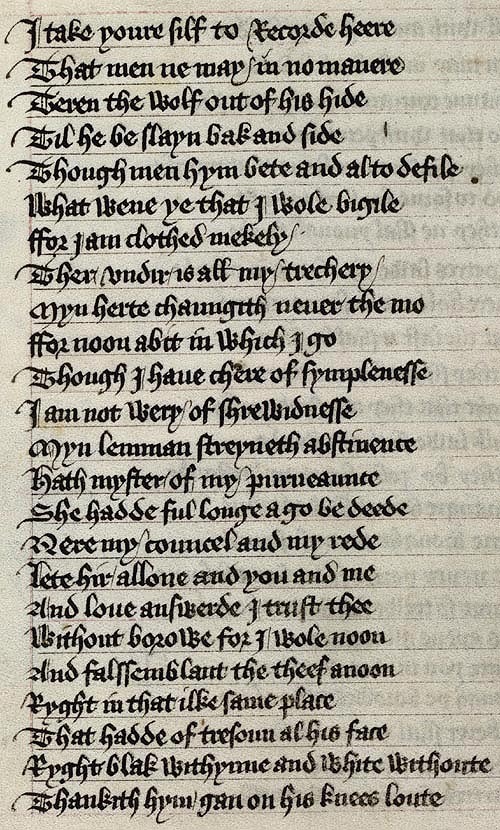 I take youre silf to Recorde heere
That men ne may in no manere
Teren the wolf out of his hide
Til he be slayn bak and side
Though men hym bete and al to defile
What wene ye that I wole bigile
ffor I am clothed mekely
Ther vndir is all my trechery
Myn herte chaungith neuer the mo
ffor noon abit in which I go
Though I haue chere of symplenesse
I am not wery of shrewidnesse
Myn lemman streyneth abstinence
Hath myster of my purueaunce
She hadde ful longe ago be deede
Nere my councel and my rede
Lete hir allone and you and me
And loue answerde I trust thee
Without borowe for I wole noon
And falssemblant the theef anoon
Ryght in that ilke same place
That hadde of tresoun al his face
Ryght blak withynne and white withoute
Thankith hym gan on his knees loute